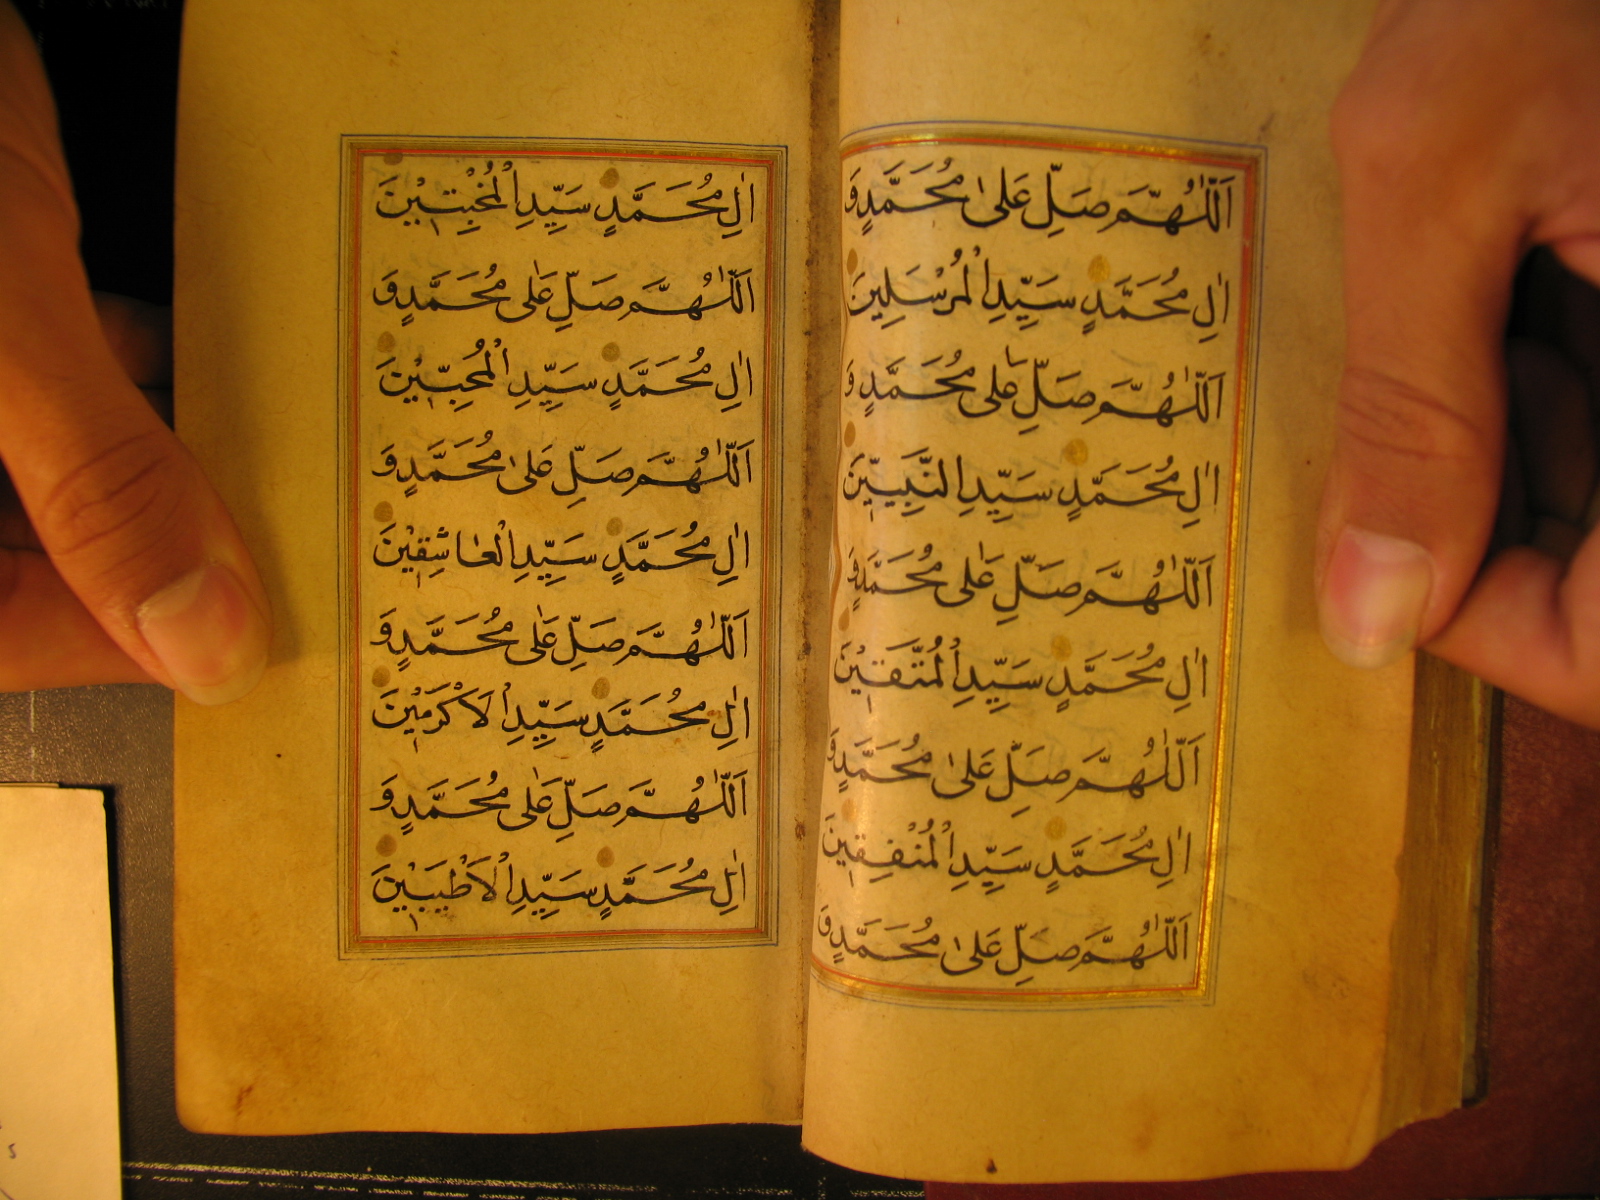 اَللّٰهُمَّ صَلِّ عَلٰى مُحَمَّدٍ وَ
اٰلِ مُحَمَّدٍ سَيِّدِ الْمُرْسَلِينَ
اَللّٰهُمَّ صَلِّ عَلٰى مُحَمَّدٍ وَ
اٰلِ مُحَمَّدٍ سَيِّدِ النَّبِيِّينَ
اَللّٰهُمَّ صَلِّ عَلٰى مُحَمَّدٍ وَ
اٰلِ مُحَمَّدٍ سَيِّدِ الْمُتَّقِينَ
اَللّٰهُمَّ صَلِّ عَلٰى مُحَمَّدٍ وَ
اٰلِ مُحَمَّدٍ سَيِّدِ الْمُنْفِقِينَ
اَللّٰهُمَّ صَلِّ عَلٰى مُحَمَّدٍ وَ
اٰلِ مُحَمَّدٍ سَيِّدِ الْمُخْبِتِيْنَ
اَللّٰهُمَّ صَلِّ عَلٰى مُحَمَّدٍ وَ
اٰلِ مُحَمَّدٍ سَيِّدِ الْمُحِبِّيْنَ
اَللّٰهُمَّ صَلِّ عَلٰى مُحَمَّدٍ وَ
اٰلِ مُحَمَّدٍ سَيِّدِ الْعَاشِقِيْنَ
اَللّٰهُمَّ صَلِّ عَلٰى مُحَمَّدٍ وَ
اٰلِ مُحَمَّدٍ سَيِّدِ الْاَكْرَمِيْنَ
اَللّٰهُمَّ صَلِّ عَلٰى مُحَمَّدٍ وَ
اٰلِ مُحَمَّدٍ سَيِّدِ الْاَطْيَبَيْنَ